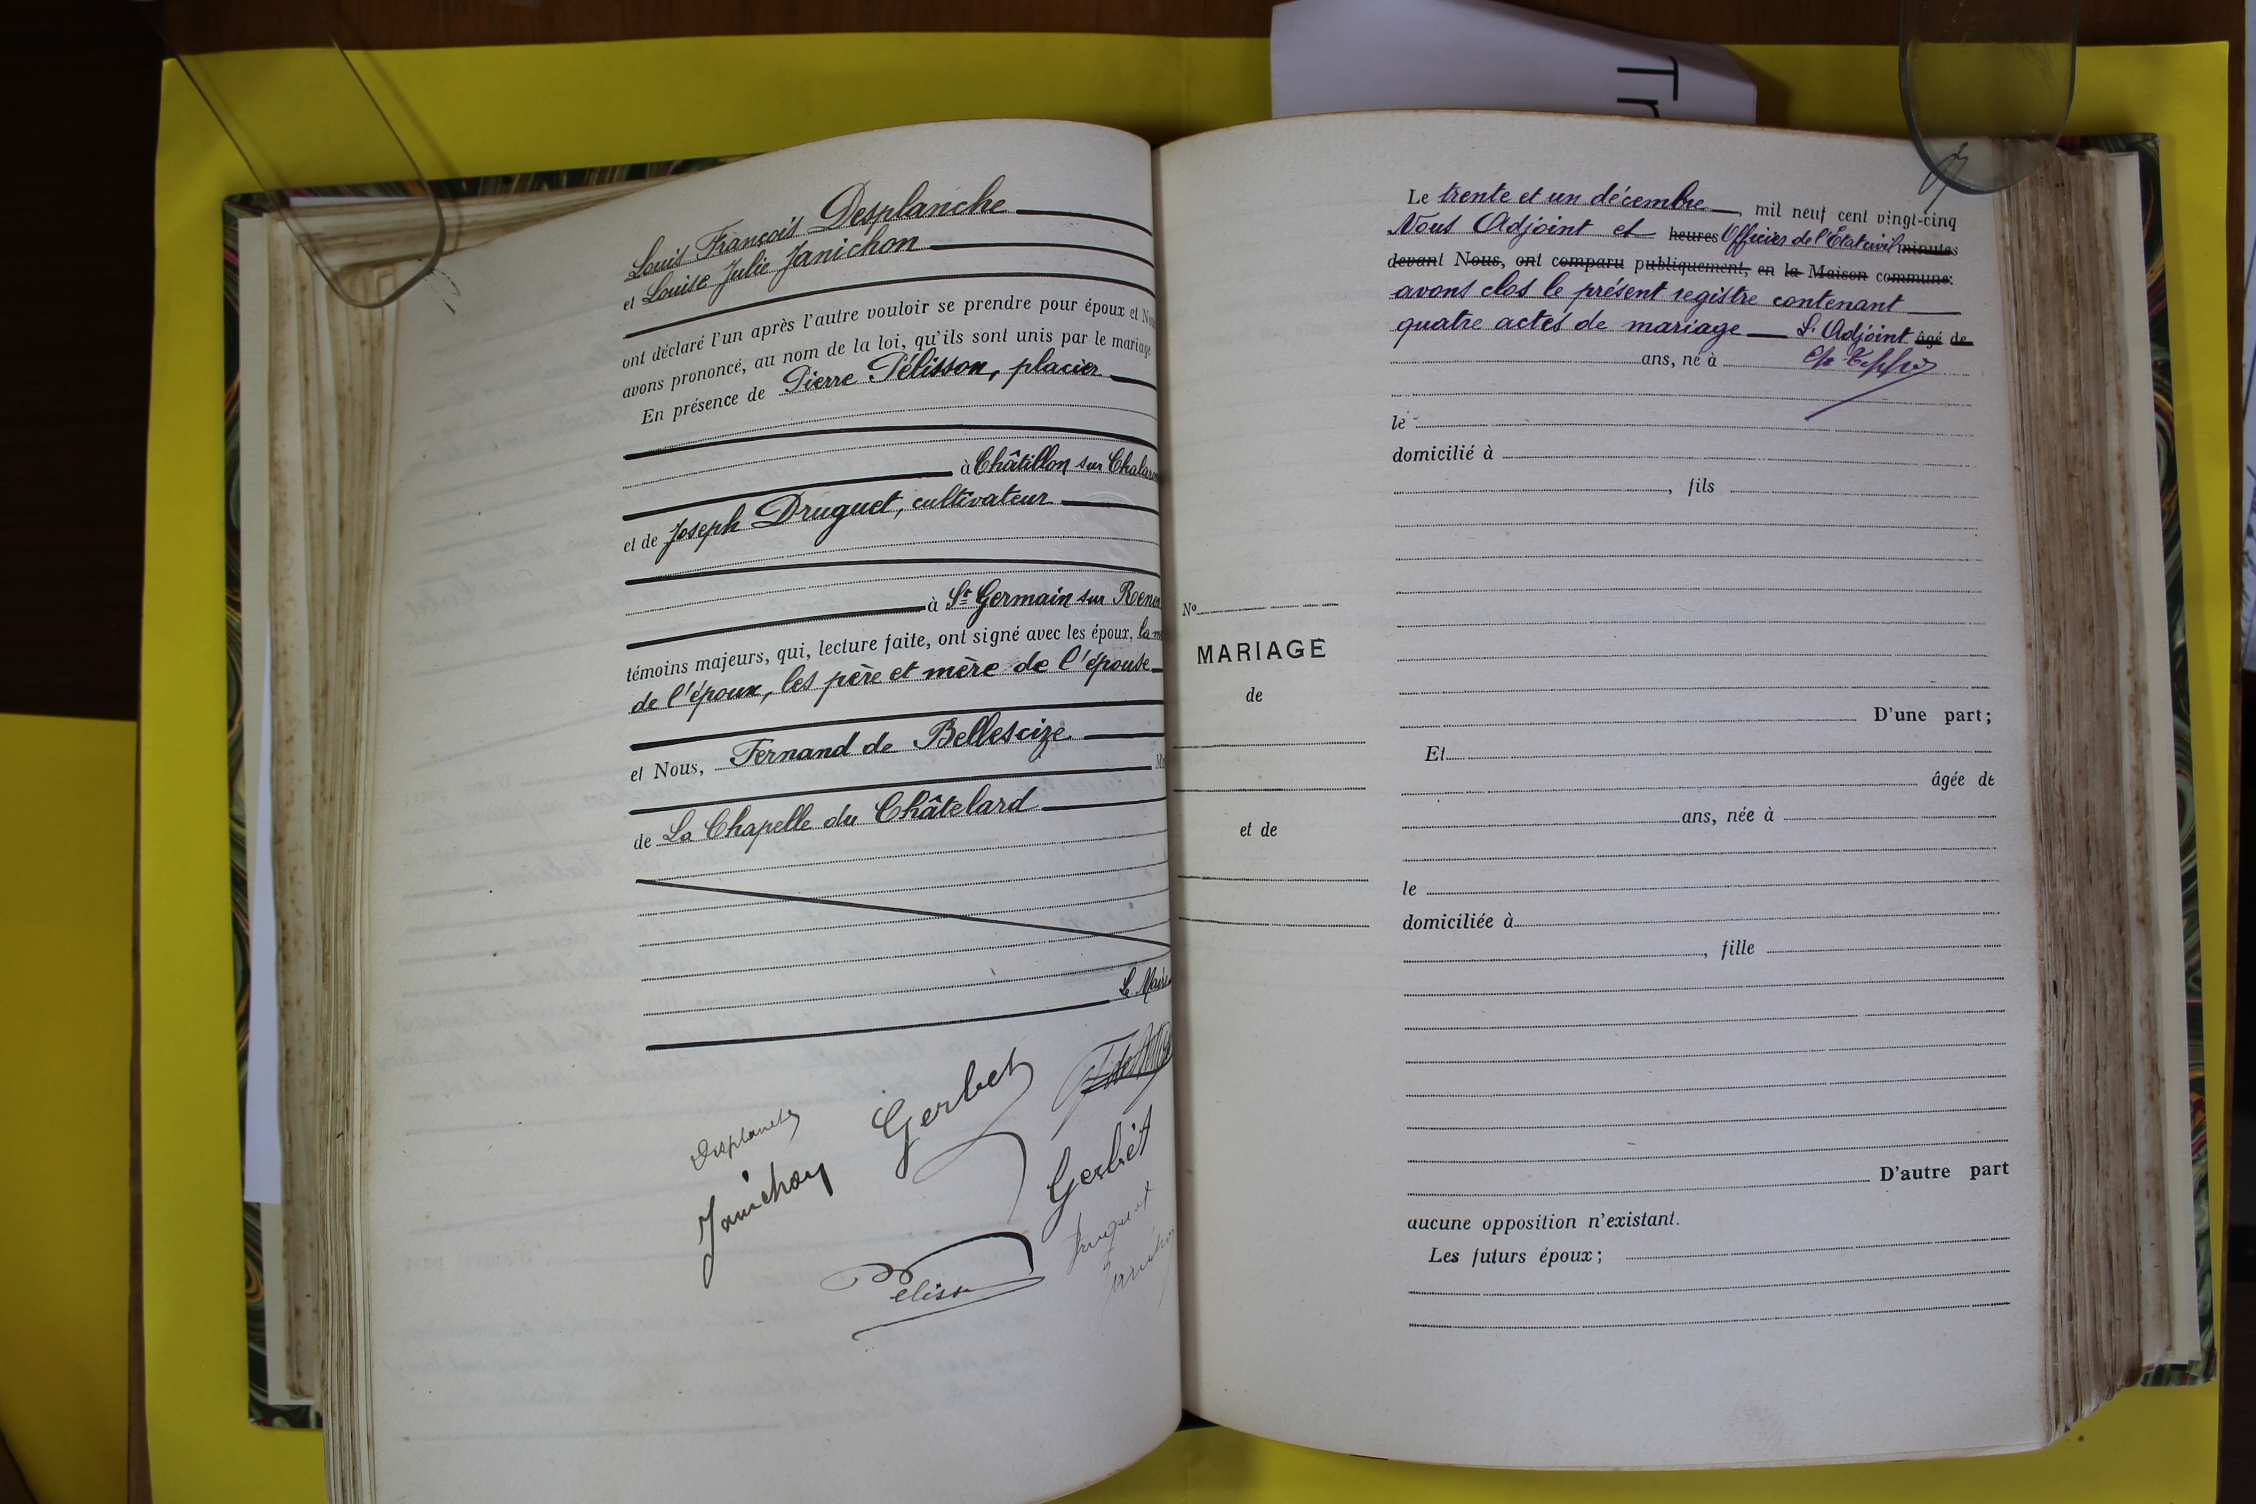 Tr
Louis François Desplanche
et Louise Julie Janichon
ont déclaré l'un après l'autre vouloir se prendre pour époux et
avons prononcé, au nom de la loi, qu'ils sont unis par le mariage
En présence de Pierre Pélisson, placier
à Châtillon sur
et de Joseph Druguet, cultivateur
à St Germain sur
témoins majeurs, qui, lecture faite, ont signé avec les époux,
de l'époux, les père et mère de l'épouse
et Nous, Fernand de Bellescize
de La Chapelle du Châtelard
Le Maire
Desplanche
Gerbet
Janichon
Gerbet
Druguet
Pelisson
Janichon
Le trente et un décembre, mil neuf cent vingt-cinq
Nous Adjoint et heures Officier de l'État civil minutes
devant Nous, ont comparu publiquement, en la Maison commune:
avons clos le présent registre contenant
quatre actes de mariage L'Adjoint âgé de
ans, né à
le
domicilié à
, fils
No
MARIAGE
de
et de
D'une part;
Et
âgée de
ans, née à
le
domiciliée à
, fille
D'autre part
aucune opposition n'existant.
Les futurs époux;